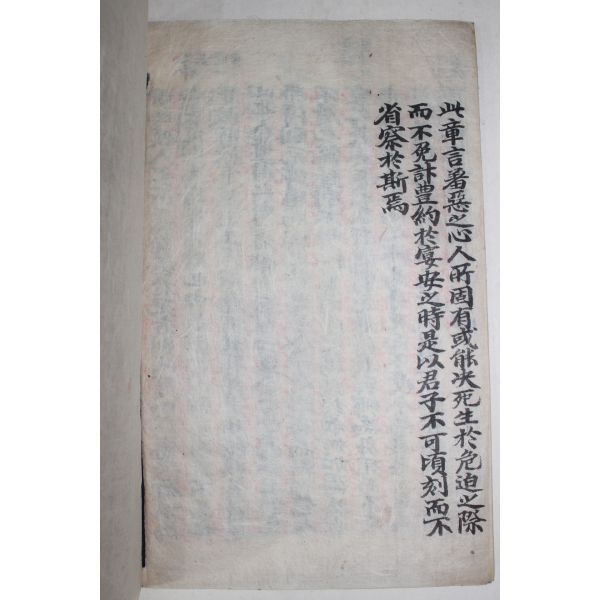 此章言羞惡之心人所固有或能决死生於危迫之際
而不免計豊約於宴安之時是以君子不可頃刻而不
省察於斯焉